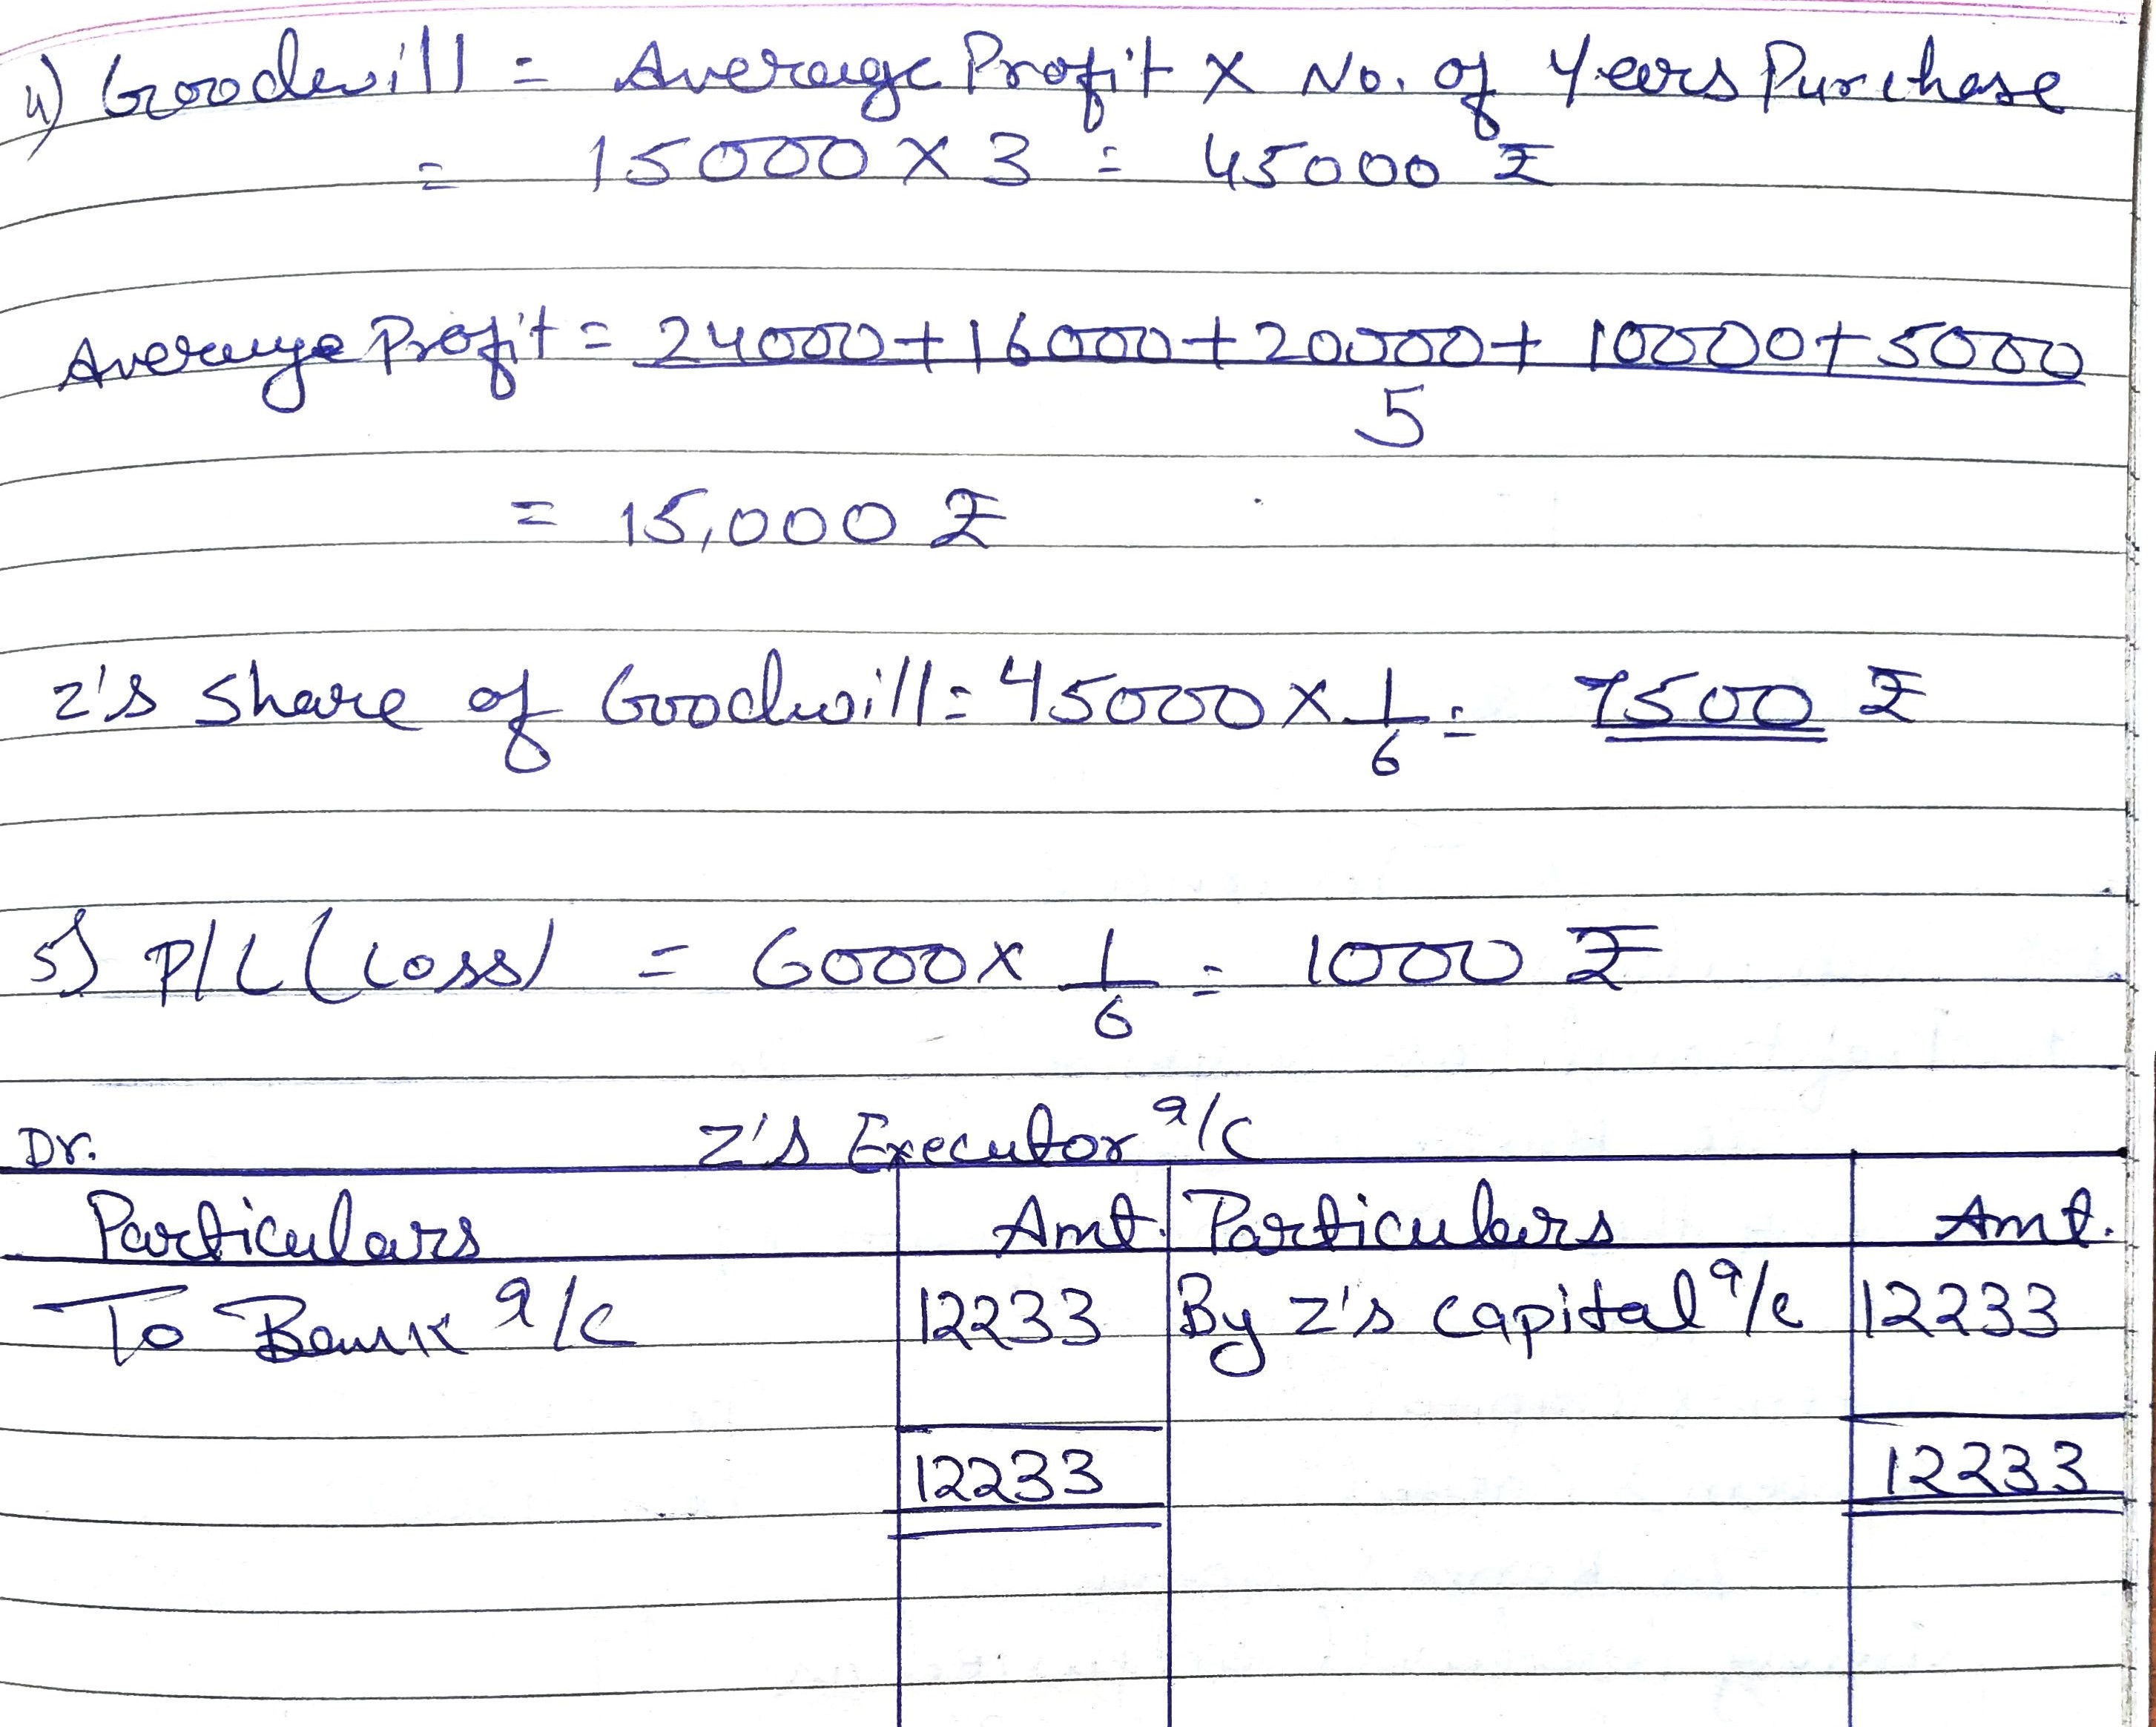 4) Goodwill = Average Profit x No. of Years Purchase
= 15000 x 3 = 45000 ₹
Average Profit = 24000+16000+20000+10000+5000
5
= 15,000 ₹
Z's Share of Goodwill = 45000 x 1/6 = 7500 ₹
5) P/L (Loss) = 6000 x 1/6 = 1000 ₹
Dr. Z's Executor a/c
Particulars Amt. Particulars Amt.
To Bank a/c 12233 By Z's Capital a/c 12233
12233 12233